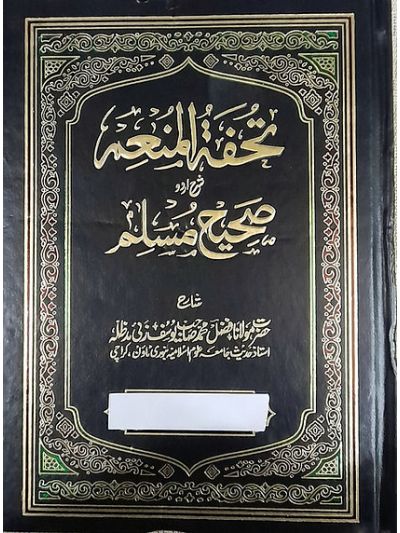 تحفۃ المنعم
شرح اردو
صحیح مسلم
شارح
حضرت مولانا فضل محمد صاحب یوسفزئی مدظلہ
استاذ حدیث جامعہ علوم اسلامیہ بنوری ٹاؤن، کراچی